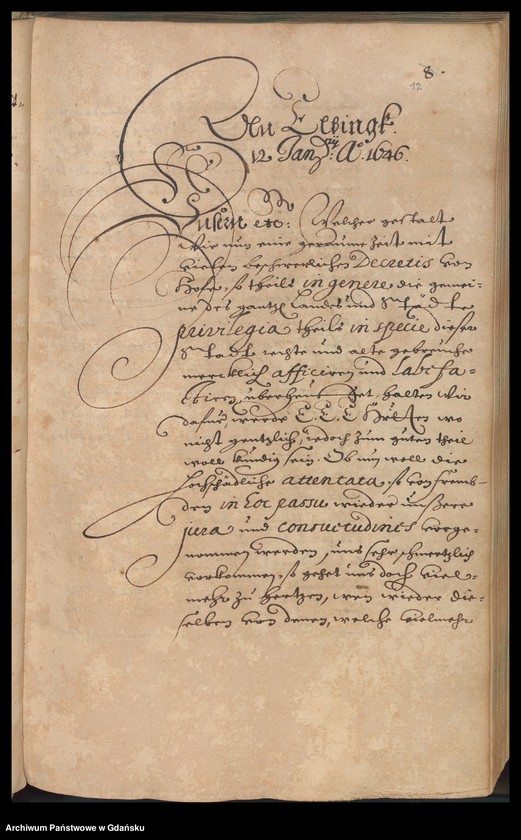 8.
12
An Elbingk.
12 Janrij: Aº. 1646.
Unsern etc: Welcher gestalt
Wir nun eine geraume Zeit mit
vielen beschwerlichen Decretis von
Hofe, so theils in genere die gemei-
ne des gantzen Landes und Städte
privilegia theils in specie dieser
Stadt rechte und alte gebreuche
mercklich afficiren und labefa-
ctiren, überheufet, halten wir
dafür, werde E. E. E. Herl. wo
nicht gentzlich, iedoch zum guten theil
woll kündig sein. Ob nun woll die
hochschädliche attentata, so von fremb-
den in hoc passu wieder unßere
jura und consuetudines vorge-
nommen werden, uns sehr schmertzlich
vorkommen, so gehet uns doch viel-
mehr zu hertzen, wen wieder die-
selben von denen, welche vielmehr
Archiwum Państwowe w Gdańsku